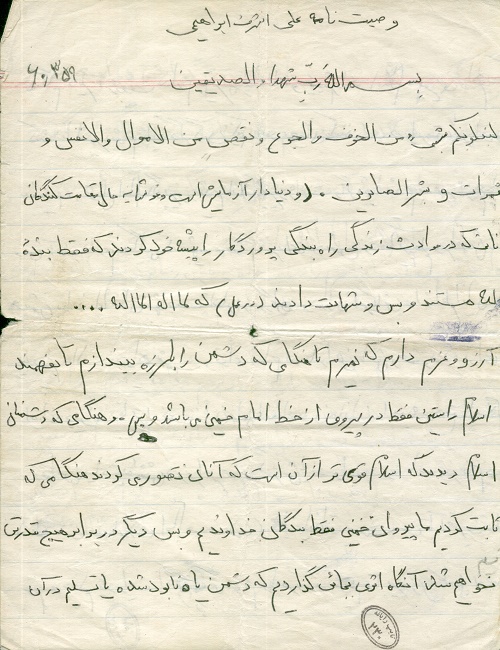 وصیت نامه علی اشرف ابراهیمی
بسم الله رب شهدا و الصدیقین
لنبلونکم بشیء من الخوف والجوع و نقص من الاموال والانفس و
ثمرات و بشر الصابرین . (و دنیا دار آزمایش است و خوشا به حال
که در حوادث زندگی راه بندگی پروردگار را پیشه خود کردند که فقط بنده
هستند و بس و شهادت دادند که لا اله الا الله ....
آرزو و عزم دارم که نمیرم تا هنگامی که دشمن را بلرزه بیندازم تا بفهمند
اسلام راستین فقط در پیروی از خط امام خمینی می باشد و بس . و هنگامی که دشمنان
اسلام دیدند که اسلام قوی تر از آن است که آنان تصوری کردند هنگامی که
ثابت کردیم ما پیروان خمینی فقط بندگان خداوندیم و بس دیگر در برابر هیچ قدرتی
خم نخواهیم شد آنگاه اثری بجای گذاردیم که دشمن یا نابود شده یا تسلیم در آن